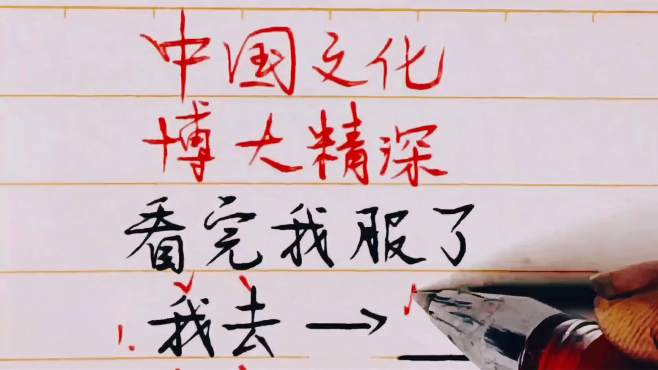 中国文化
博大精深
看完我服了
1. 我去→